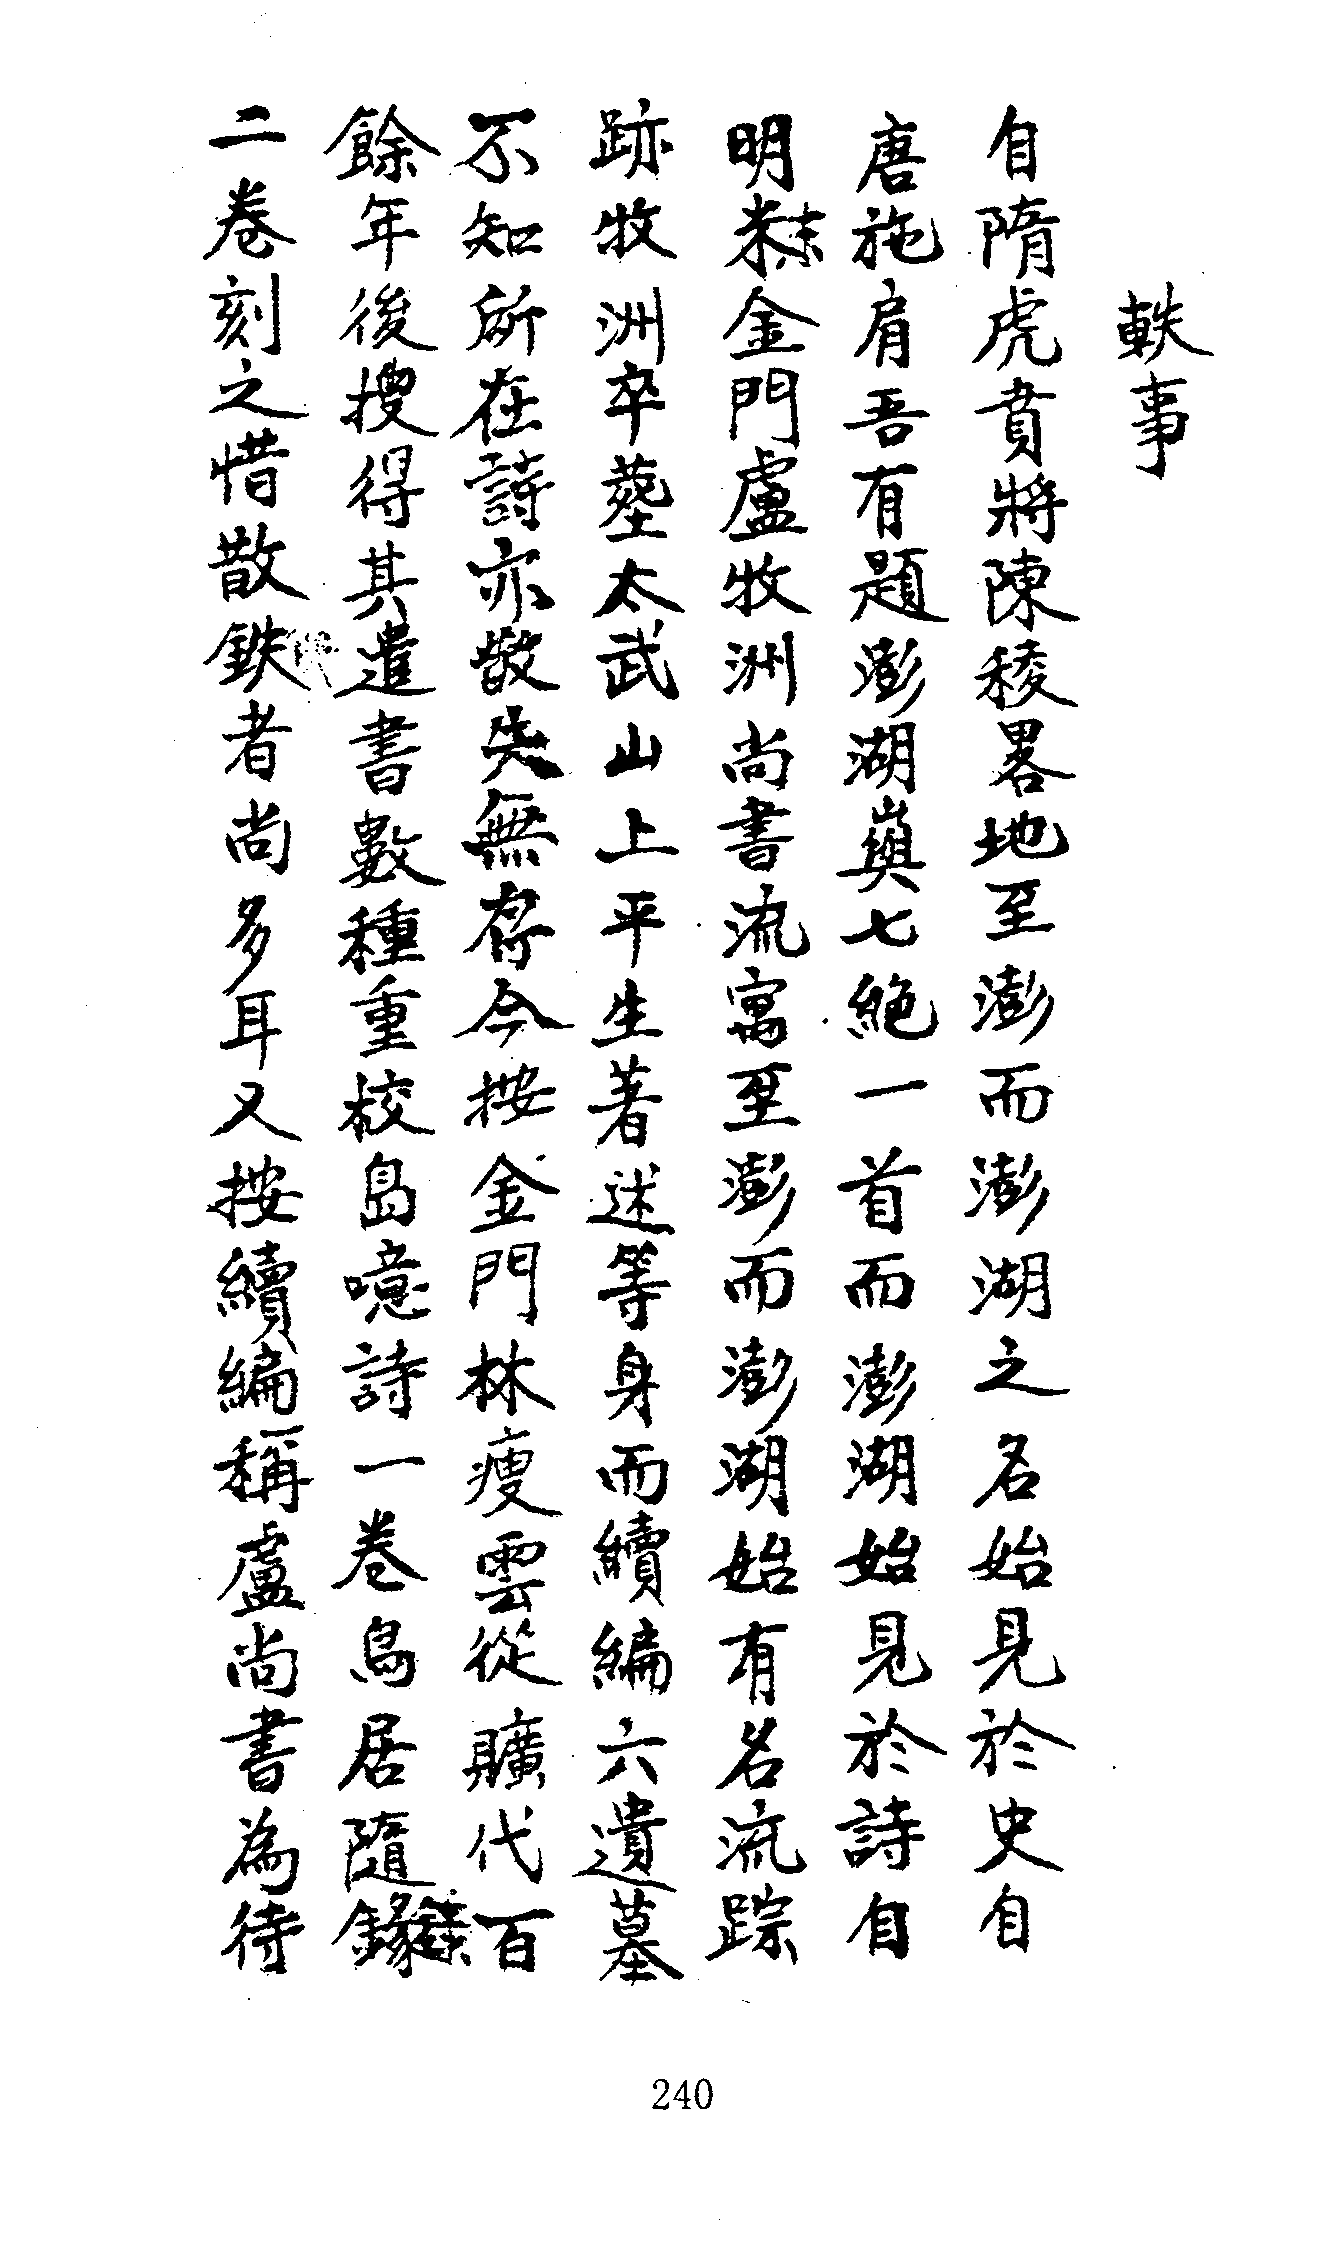 軼事
自隋虎賁將陳稜畧地至澎而澎湖之名始見於史自
唐施肩吾有題澎湖嶼七絕一首而澎湖始見於詩自
明末金門盧牧洲尚書流寓至澎而澎湖始有名流踪
跡牧洲卒塟太武山上平生著述等身而續編六遺墓
不知所在詩亦散失無存今按金門林瘦雲從曠代百
餘年後搜得其遺書數種重校島噫詩一卷島居隨錄
二卷刻之惜散鉄者尚多耳又按續編稱盧尚書為待
240